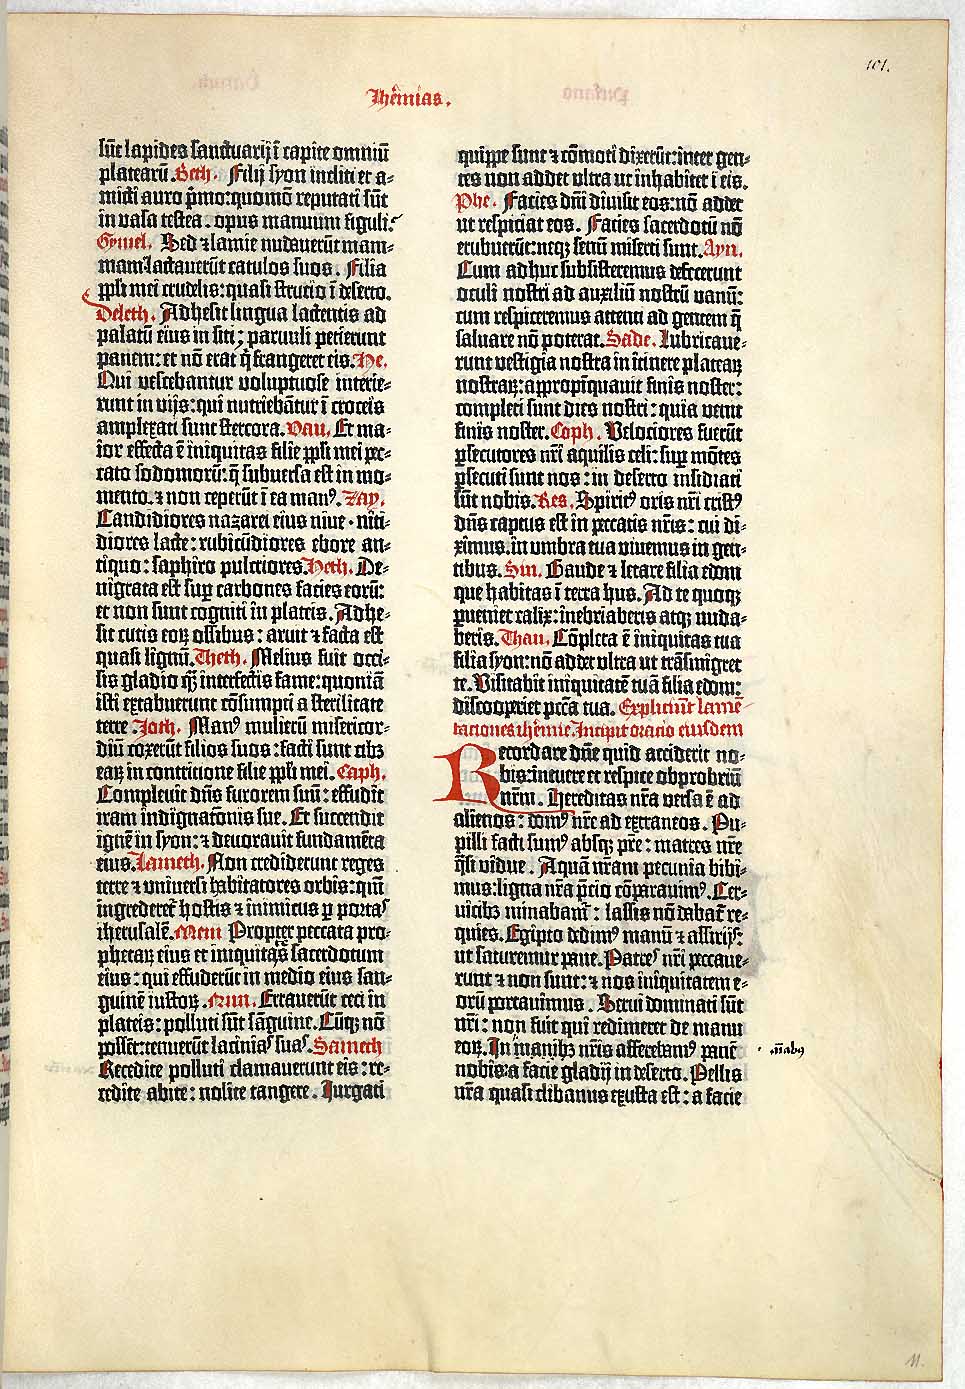 101.
Jhẽmias.
sũt lapides sanctuarij ĩ capite omniũ
platearũ. Beth. Filij syon incliti et a⸗
micti auro p̃mo: quomõ reputati sũt
in vasa testea. opus manuum figuli.
Gymel. Sed ⁊ lamie nudauerũt mam⸗
mam: lactauerũt catulos suos. Filia
pp̃li mei crudelis: quasi strucio ĩ deserto.
Deleth. Adhesit lingua lactentis ad
palatũ eius in siti; paruuli petierunt
panem: et nõ erat q̃ frangeret eis. He.
Qui vescebantur voluptuose interie⸗
runt in vijs: qui nutriebãntur ĩ croceis
amplexati sunt stercora. Vau. Et ma⸗
ior effecta ẽ iniquitas filie pp̃li mei pec⸗
cato sodomorũ: q̃ subuersa est in mo⸗
mento. ⁊ non ceperũt ĩ ea manꝰ. Zay.
Candidiores nazarei eius niue. niti⸗
diores lacte: rubicũdiores ebore an⸗
tiquo: saphiro pulcriores. Heth. De⸗
nigrata est sup̱ carbones facies eorũ:
et non sunt cogniti in plateis. Adhe⸗
sit cutis eoꝝ ossibus: aruit ⁊ facta est
quasi lignũ. Theth. Melius fuit occi⸗
sis gladio q̃ꝫ interfectis fame: quoniã
isti extabuerunt cõsumpti a sterilitate
terre. Joth. Manꝰ mulierũ misericor⸗
diũ coxerũt filios suos: facti sunt cibꝫ
eaꝝ in contritione filie pp̃li mei. Caph.
Compleuit dñs furorem suũ: effudit
iram indignatõnis sue. Et succendit
ignẽ in syon: ⁊ deuorauit fundamẽta
eius. Lameth. Non crediderunt reges
terre ⁊ vniuersi habitatores orbis: qm̃
ingrederet᷑ hostis ⁊ inimicus ꝑ portas
iherusalẽ. Mem Propter peccata pro⸗
phetaꝝ eius et iniquitates sacerdotum
eius: qui effuderũt in medio eius san⸗
guinẽ iustoꝝ. Nun. Errauerũt ceci in
plateis: polluti sũt sãguine. Cũqꝫ nõ
possẽt: tenuerũt lacinias suas. Sameth
Recedite polluti clamauerunt eis: re⸗
cedite abite: nolite tangere. Jurgati
quippe sunt ⁊ cõmoti dixerũt: inter gen⸗
tes non addet vltra ut inhabitet ĩ eis.
Phe. Facies dñi diuisit eos: nõ addet
ut respiciat eos. Facies sacerdotũ nõ
erubuerũt: neqꝫ senũ miserti sunt. Ayn.
Cum adhuc subsisteremus defecerunt
oculi nostri ad auxiliũ nostrũ vanũ:
cum respiceremus attenti ad gentem q̃
saluare nõ poterat. Sade. Lubricaue⸗
runt vestigia nostra in itinere plateaꝝ
nostraꝝ: appropinquauit finis noster:
completi sunt dies nostri: quia venit
finis noster. Coph. Velociores fuerũt
ꝑsecutores nr̃i aquilis celi: sup̱ mõtes
ꝑsecuti sunt nos: in deserto insidiati
sũt nobis. Res. Spiritꝰ oris nr̃i cristꝰ
dñs captus est in peccatis nr̃is: cui di⸗
ximus. in vmbra tua viuemus in gen⸗
tibus. Sin. Gaude ⁊ letare filia edom
que habitas ĩ terra hus. Ad te quoqꝫ
ꝑueniet calix: inebriaberis atqꝫ nuda⸗
beris. Thau. Cõpleta ẽ iniquitas tua
filia syon: nõ addet vltra ut trãsmigret
te. Visitabit iniquitatẽ tuã filia edom:
discooperiet pccã tua. Expliciũt lamẽ⸗
tationes ihẽmie. Incipit oratio eiusdem
Recordare dñe quid acciderit no⸗
bis: intuere et respice obprobriũ
nr̃m. Hereditas nr̃a versa ẽ ad
alienos: domꝰ nr̃e ad extraneos. Pu⸗
pilli facti sumꝰ absqꝫ pr̃e: matres nr̃e
q̃si vidue. Aquã nr̃am pecunia bibi⸗
mus: ligna nr̃a p̃cio cõparauimꝰ. Cer⸗
uicibꝫ minabam᷑: lassis nõ dabat᷑ re⸗
quies. Egipto dedimꝰ manũ ⁊ assirijs:
ut saturemur pane. Patres nr̃i peccaue⸗
runt ⁊ non sunt: ⁊ nos iniquitatem e⸗
orũ portauimus. Serui dominati sũt
nr̃i: non fuit qui redimeret de manu
eoꝝ. In manibꝫ nr̃is afferebamꝰ panẽ
nobis: a facie gladij in deserto. Pellis
nr̃a quasi clibanus exusta est: a facie
11.